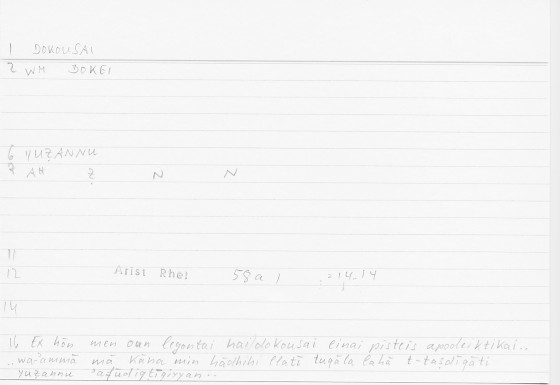 1 DOKOUSAI
2 WM DOKEI
6 YUẒANNU
7 AH Ẓ N N
11
12 Arist Rhet 58a1 :=14.14
14
16 Ex hōn men oun legontai hai dokousai einai pisteis apodeiktikai..
..wa-ʾammā mā kāna min hādhihi llatī tuqāla lahā t-taṣdīqāti
yuẓannu